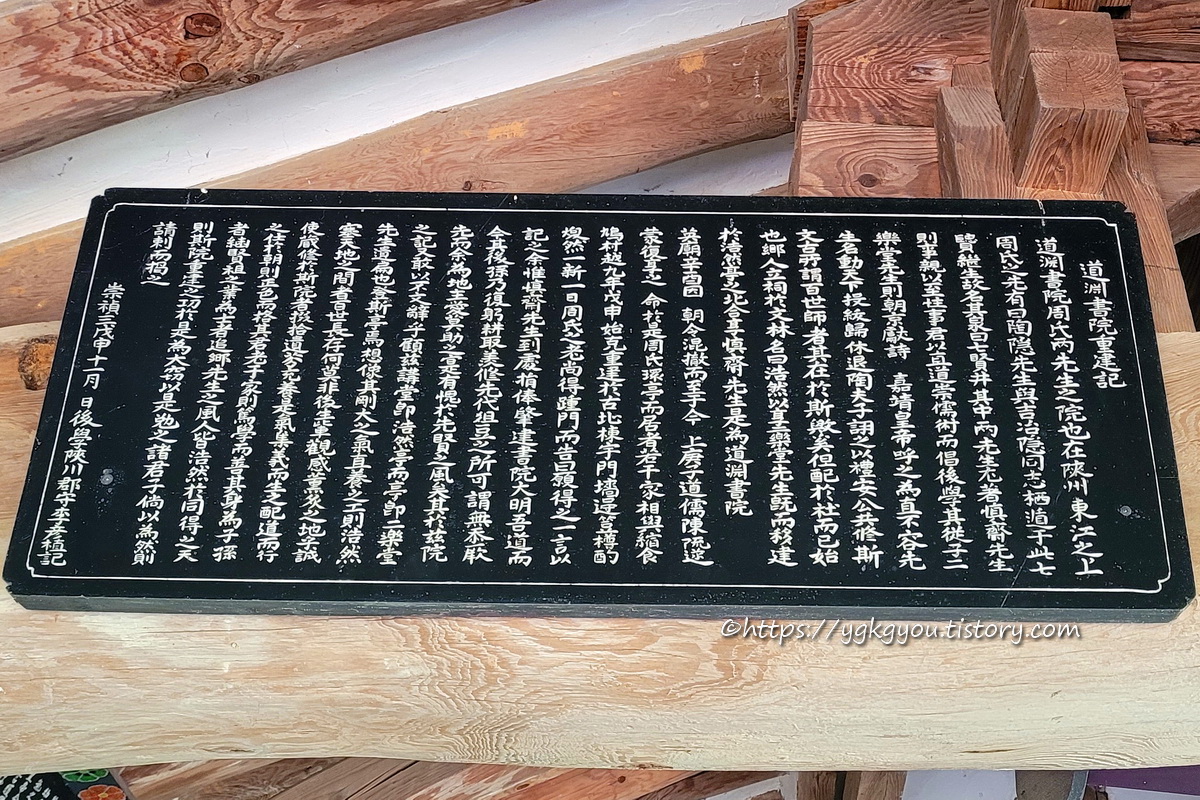 道淵書院重建記
道淵書院周氏兩先生之院也在陜州東江之上
周氏之先有曰陶隱先生與吉冶隱同志栖遁于此七
賢繼生故名其泉曰七賢井其中兩先生者愼齋先生
則事親以至性事君以直道崇儒術而倡後學其從子二
樂堂先生則朝天獻詩 嘉靖皇帝呼之爲直不容先
生名動天下授紱歸休退陶夫子詡之以禮安公共脩斯
文古所謂百世師者其在於斯歟矣但配於社而已始
也鄕人立祠於文林名曰浩然以享二樂堂先生旣而移建
於浩然亭之北合享愼齋先生是爲道淵書院
英廟辛酉因 朝令混撤而至于今 上庚子道儒陳疏遂
蒙復享之 命於是周氏環亭而居者若干家相與縮食
鳩材越九年戊申始克重建於古址棟宇門墻籩豆樽酌
煥然一新一日周氏之老尙得踵門而告曰願得之一言以
記之余惟愼齋先生到處捐俸肇建書院大明吾道而
今其後孫乃復躬耕取美脩先公俎豆之所可謂無忝厥
先而余爲地主莫其助之寔有愧於先賢之風矣其於玆院
之記敢以不文辭乎顧玆講堂卽浩然亭而亭卽二樂堂
先生遺扁也登斯亭爲想像其剛大之氣直養之工則浩然
塞天地之間者百世長存何莫非後生起觀感薰炙之地乎誠
使藏修於斯院者收拾遺芬充養是氣集義而生之配道而行
之行於朝則正色
者緬賢祖之業爲士者追鄕先生之風人皆浩然於同得之天
則斯院重建之功於是爲大矣以是勉之諸君子倘以爲然則
請刺而揭之
崇禎三戊申十一月 日後學陜川郡守李彦植記
©https://ygkgyou.tistory.com